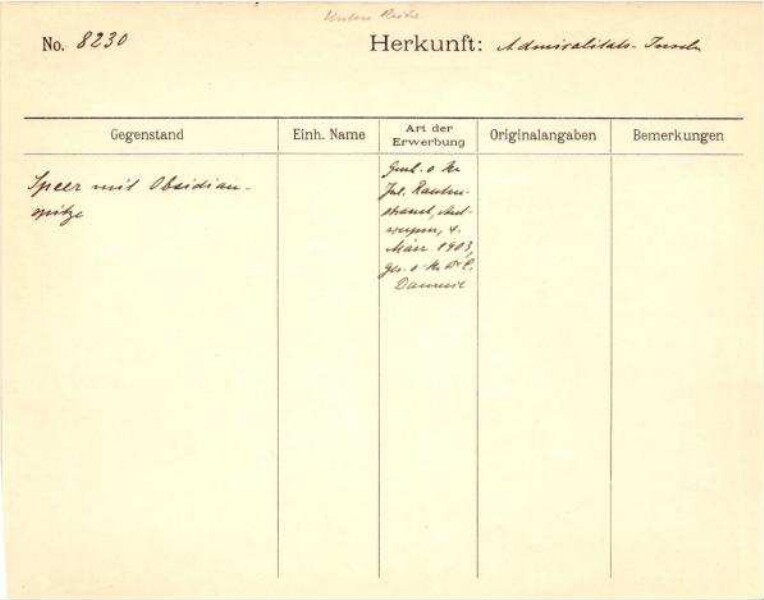 Untere Reihe
No. 8230 Herkunft: Admiralitäts-Inseln
Gegenstand Einh. Name Art der Erwerbung Originalangaben Bemerkungen
Speer mit Obsidian-
spitze
Jul. Rauten-
strauch, Ant-
werpen, 4.
März 1903,